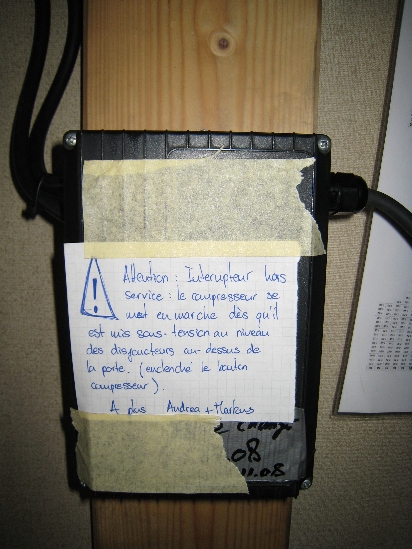 ! Attention : Interrupteur hors
service : le compresseur se
met en marche dès qu'il
est mis sous-tension au niveau
des disjoncteurs au-dessus de
la porte. (enclenché le bouton
compresseur).
A plus Andrea + Markus
08
.08